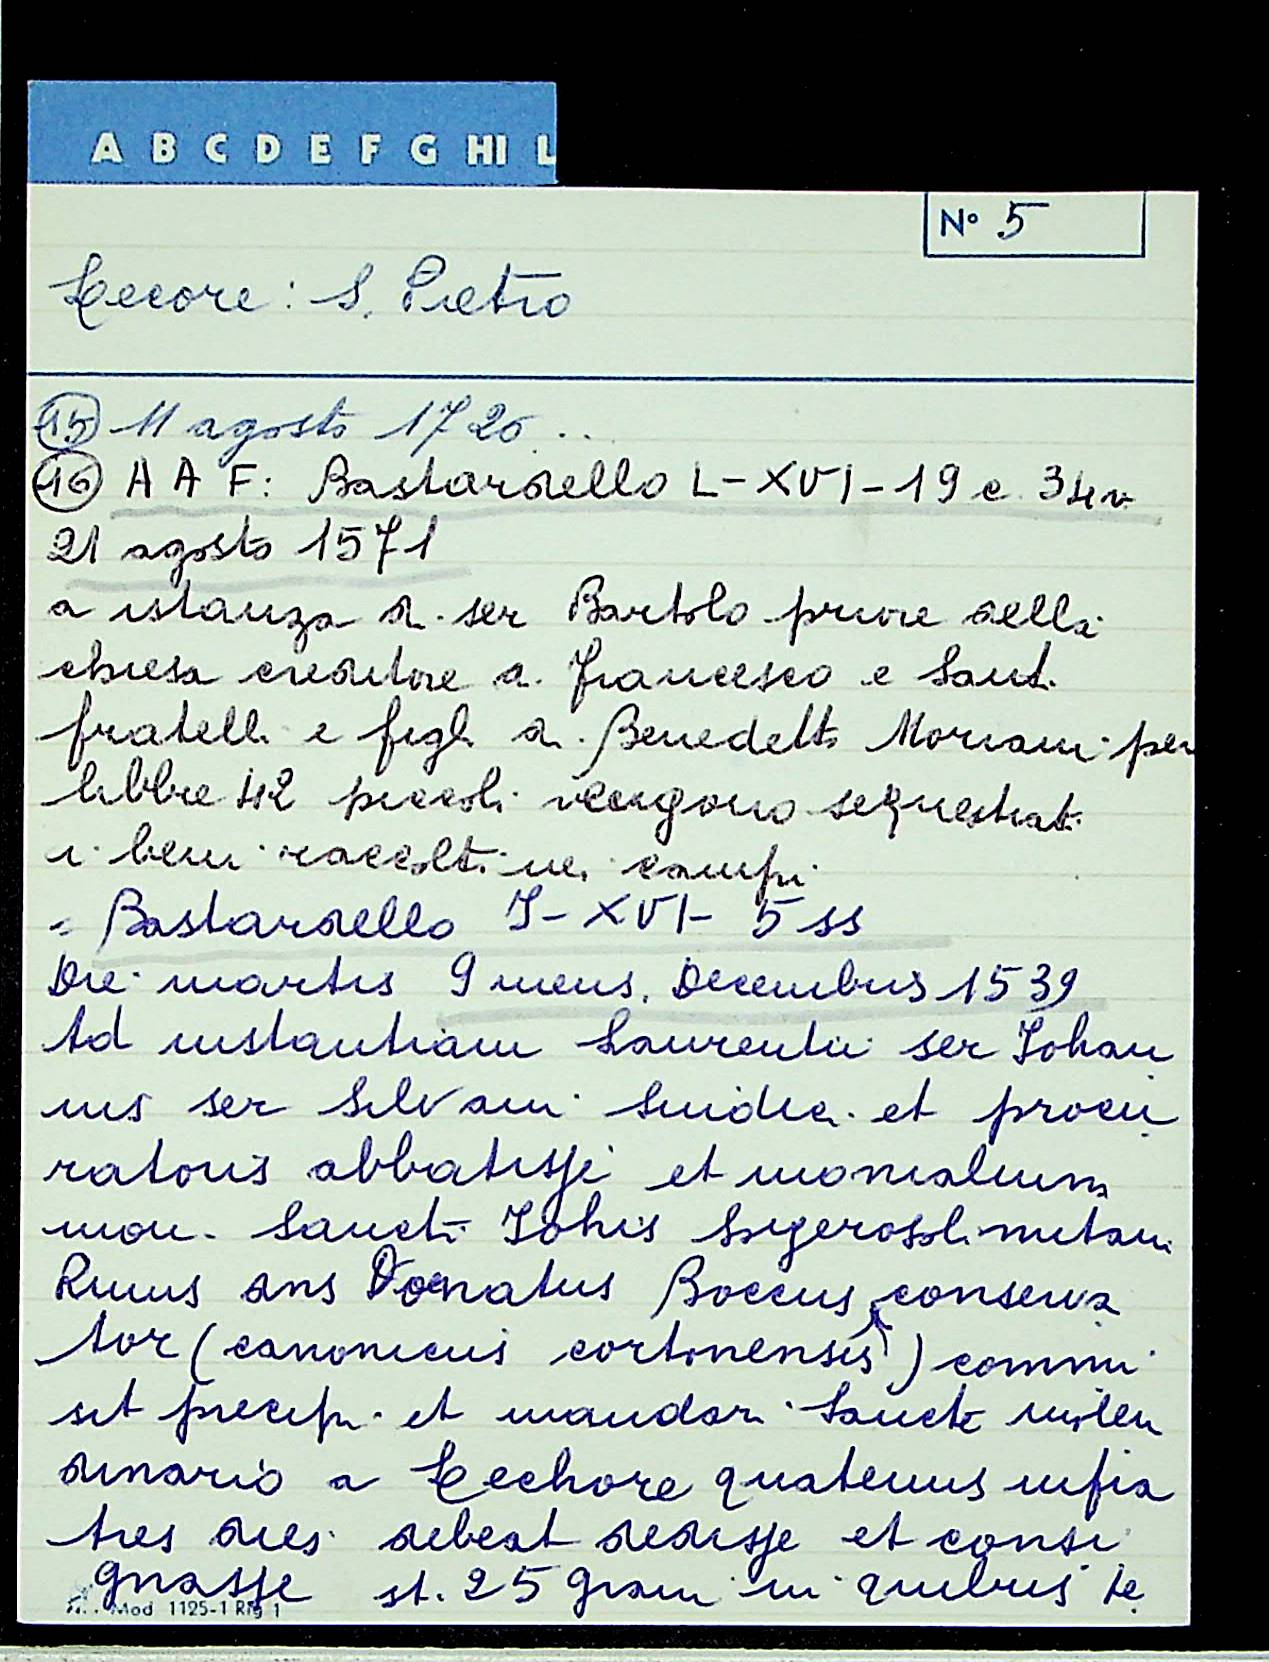 A B C D E F G HI L
N° 5
Lecore: S. Pietro
(15) 11 agosto 1720...
(16) A A F: Bastardello L-XVI-19 c. 34v.
21 agosto 1571
a istanza di ser Bartolo priore della
chiesa creditore a. Francesco e Santi
fratelli e figli di Benedetto Moriani per
libbre 42 piccoli vengono sequestrati
i beni raccolti nei campi
= Bastardello I-XVI-5ss
Die martis 9 mens. Decembris 1539
Ad instantiam Laurentii ser Johan
nis ser Silvani Sindici et procu
ratoris abbatisse et monialium
mon. Sancti Johis Sygerosolimitani
R.mus dns Donatus Boccus, conserva
tor (canonicus cortonensis) commi
sit precipi et mandari Sancti molen
dinario a Lechore quatenus infra
tres dies debeat dedisse et consi
gnasse st. 25 grani in quibus te
Mod 1125-1 Rig 1